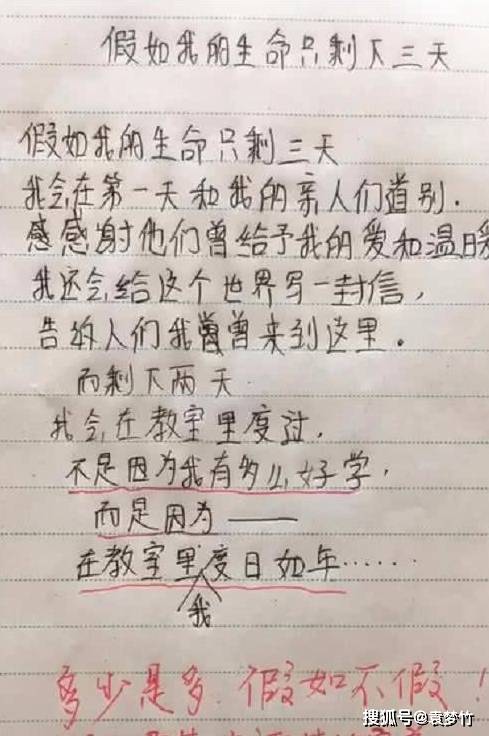 假如我的生命只剩下三天
假如我的生命只剩三天
我会在第一天和我的亲人们道别.
感感谢他们曾给予我的爱和温暖
我还会给这个世界写一封信,
告诉人们我曾曾来到这里.
而剩下两天
我会在教室里度过,
不是因为我有多么好学,
而是因为——
在教室里度日如年……
我
多少是多,假如不假!
搜狐号@袁梦竹